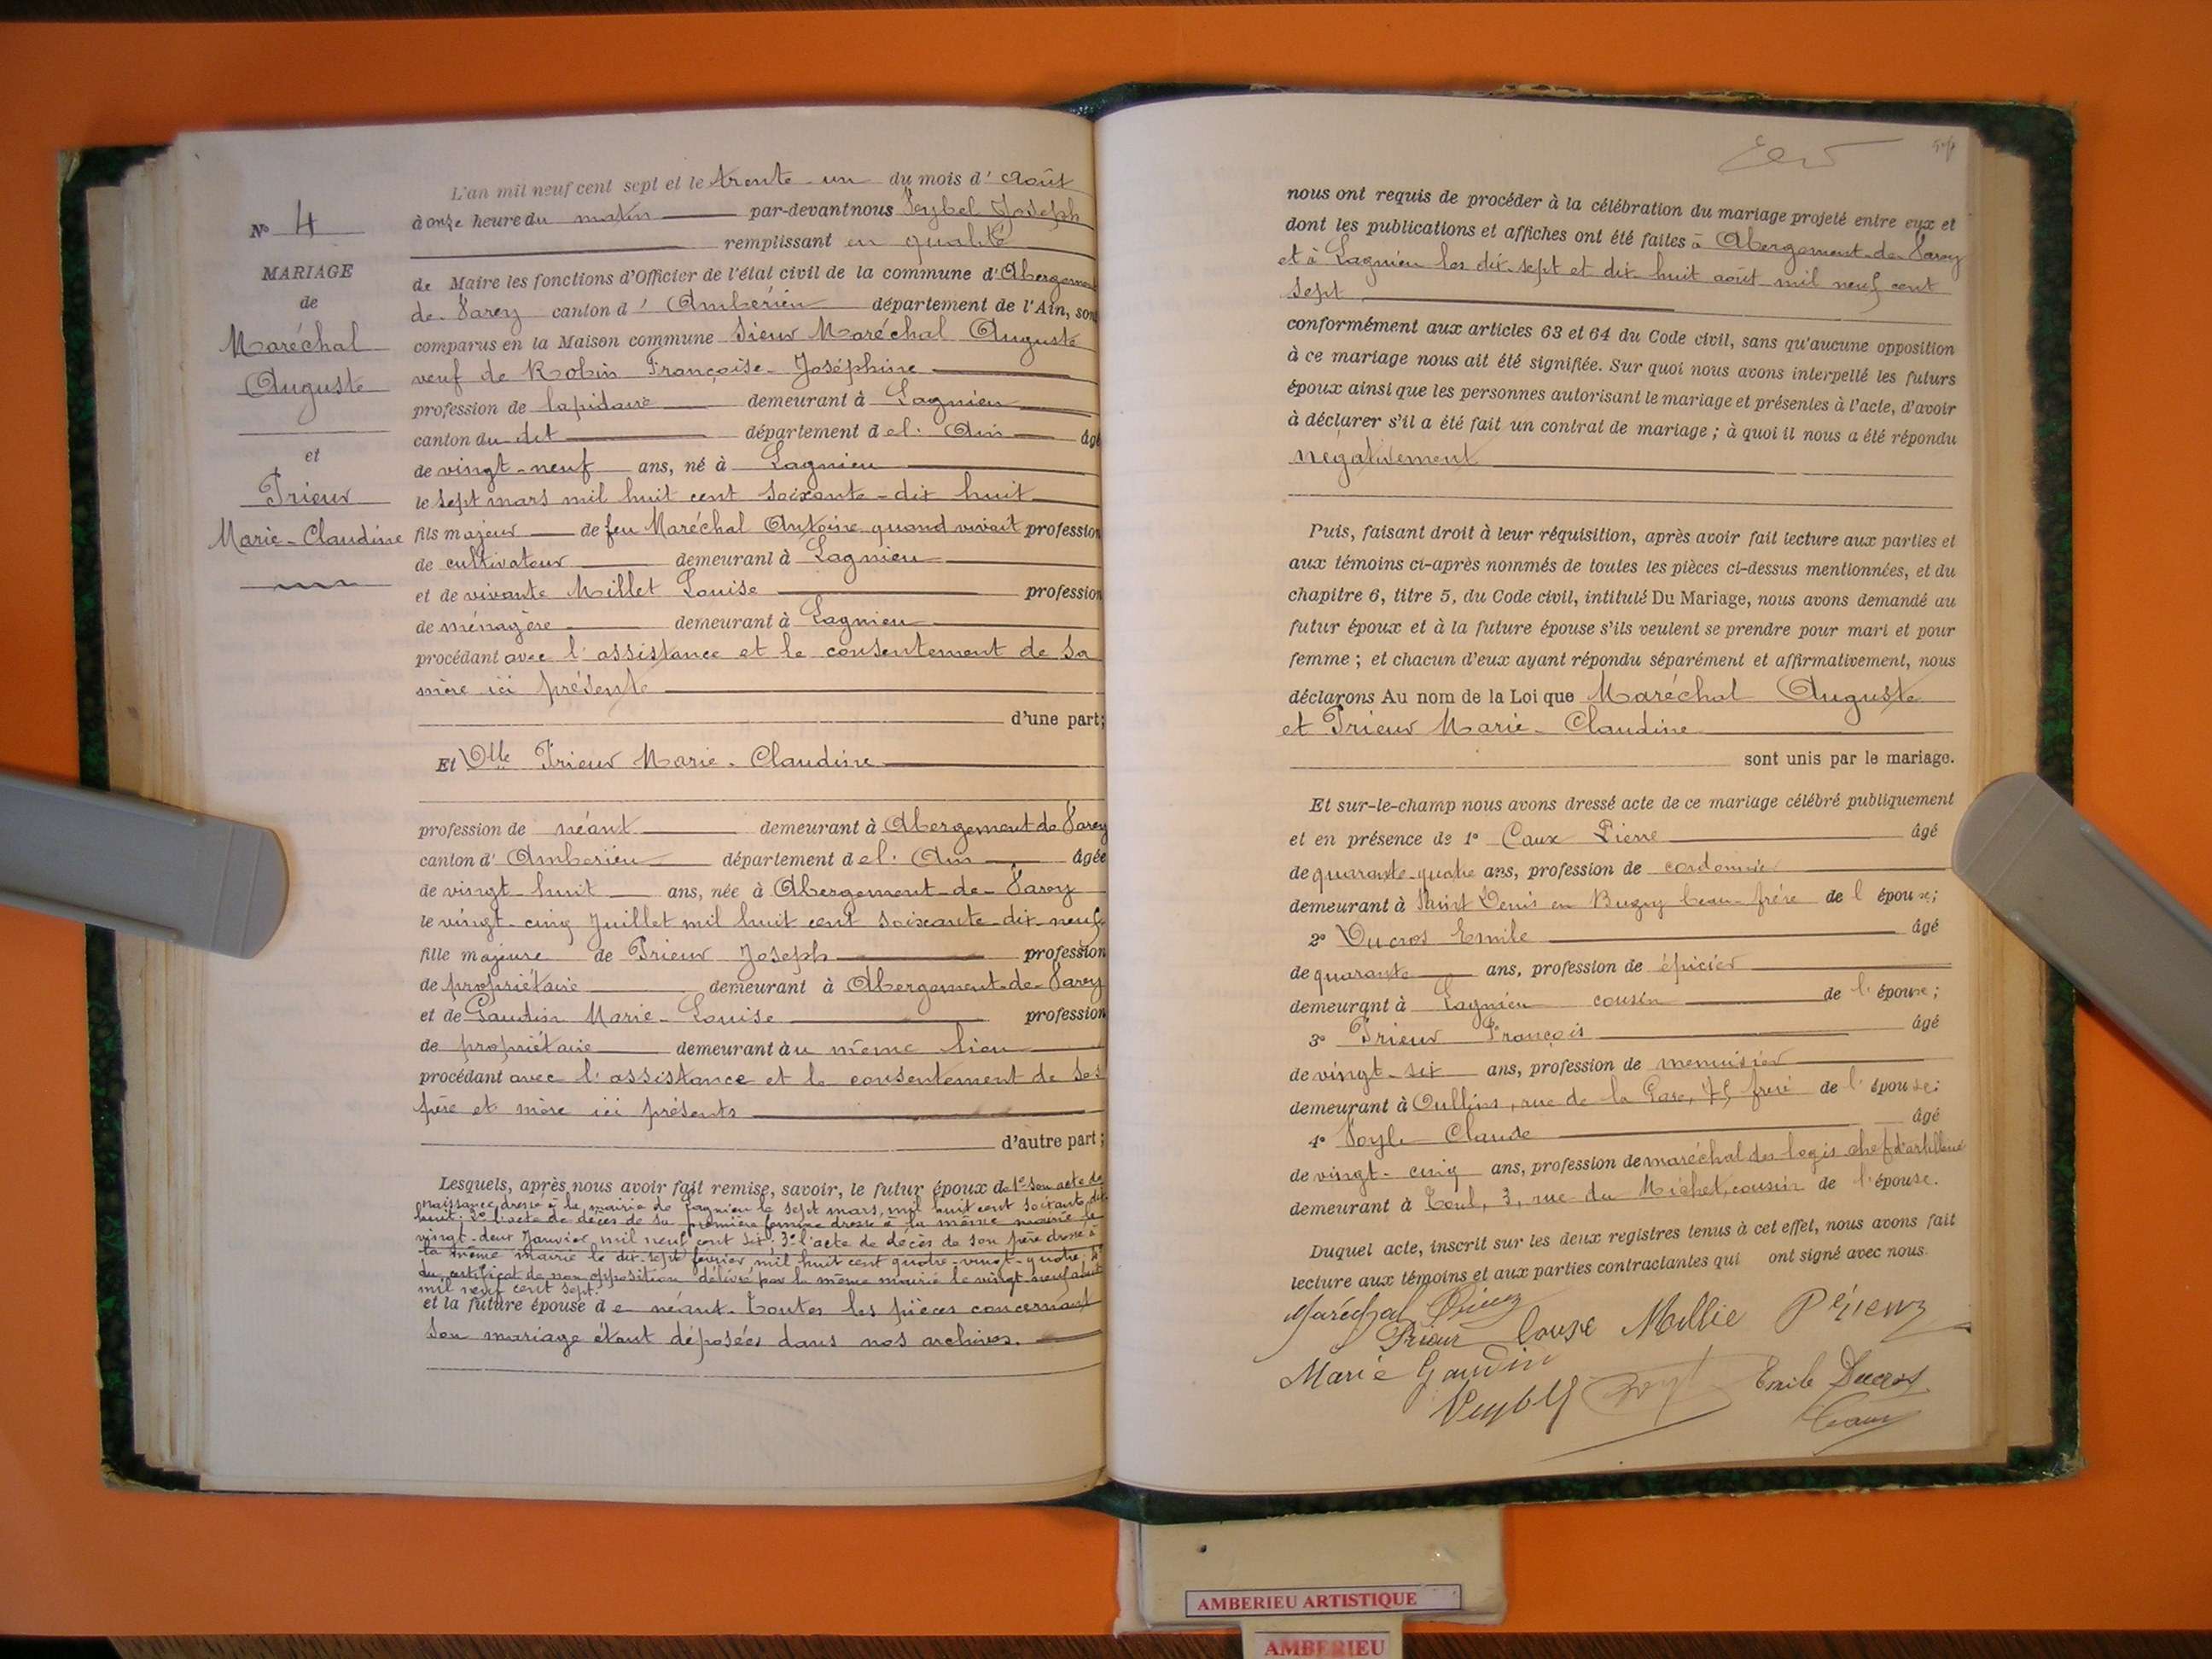 N° 4
MARIAGE
de
Maréchal
Auguste
et
Prieur
Marie-Claudine
L'an mil neuf cent sept et le trente-un du mois d'Août
à onze heure du matin par-devant nous Veybel Joseph
remplissant en qualité
de Maire les fonctions d'Officier de l'état civil de la commune d'Abergement
de-Varey canton d'Ambérieu département de l'Ain, sont
comparus en la Maison commune Sieur Maréchal Auguste
veuf de Robin Françoise-Joséphine
profession de lapidaire demeurant à Lagnieu
canton du dit département de l'Ain âgé
de vingt-neuf ans, né à Lagnieu
le sept mars mil huit cent soixante-dix huit
fils majeur de feu Maréchal Antoine quand vivait profession
de cultivateur demeurant à Lagnieu
et de vivante Millet Louise profession
de ménagère demeurant à Lagnieu
procédant avec l'assistance et le consentement de sa
mère ici présente
d'une part;
Et Dlle Prieur Marie-Claudine
profession de néant demeurant à Abergement de Varey
canton d'Ambérieu département de l'Ain âgée
de vingt huit ans, née à Abergement-de-Varey
le vingt-cinq Juillet mil huit cent soixante-dix-neuf
fille majeure de Prieur Joseph profession
de propriétaire demeurant à Abergement-de-Varey
et de Gaudin Marie-Louise profession
de propriétaire demeurant au même lieu
procédant avec l'assistance et le consentement de ses
père et mère ici présents
d'autre part;
Lesquels, après nous avoir fait remise, savoir, le futur époux de 1° son acte de
naissance dressé à la mairie de Lagnieu le sept mars, mil huit cent soixante dix
huit; 2° l'acte de décès de sa première femme dressé à la même mairie le
vingt-deux Janvier, mil neuf cent six; 3° l'acte de décès de son père dressé à
la même mairie le dix-sept février, mil huit cent quatre-vingt-quatre; 4°
du certificat de non opposition délivré par la même mairie le vingt-neuf août
mil neuf cent sept.
et la future épouse de néant. Toutes les pièces concernant
son mariage étant déposées dans nos archives.
nous ont requis de procéder à la célébration du mariage projeté entre eux et
dont les publications et affiches ont été faites à Abergement-de-Varey
et à Lagnieu les dix-sept et dix-huit août mil neuf cent
sept
conformément aux articles 63 et 64 du Code civil, sans qu'aucune opposition
à ce mariage nous ait été signifiée. Sur quoi nous avons interpellé les futurs
époux ainsi que les personnes autorisant le mariage et présentes à l'acte, d'avoir
à déclarer s'il a été fait un contrat de mariage; à quoi il nous a été répondu
négativement
Puis, faisant droit à leur réquisition, après avoir fait lecture aux parties et
aux témoins ci-après nommés de toutes les pièces ci-dessus mentionnées, et du
chapitre 6, titre 5, du Code civil, intitulé Du Mariage, nous avons demandé au
futur époux et à la future épouse s'ils veulent se prendre pour mari et pour
femme; et chacun d'eux ayant répondu séparément et affirmativement, nous
déclarons Au nom de la Loi que Maréchal Auguste
et Prieur Marie-Claudine
sont unis par le mariage.
Et sur-le-champ nous avons dressé acte de ce mariage célébré publiquement
et en présence de 1° Caux Pierre âgé
de quarante-quatre ans, profession de cordonnier
demeurant à Saint Denis en Bugey beau-frère de l'épouse;
2° Ducros Emile âgé
de quarante ans, profession de épicier
demeurant à Lagnieu cousin de l'épouse;
3° Prieur François âgé
de vingt-six ans, profession de menuisier
demeurant à Oullins, rue de la Gare, 75 frère de l'épouse;
4° Claude âgé
de vingt-cinq ans, profession de maréchal des logis chef d'artillerie
demeurant à Toul, 3, rue du Michet, cousin de l'épouse.
Duquel acte, inscrit sur les deux registres tenus à cet effet, nous avons fait
lecture aux témoins et aux parties contractantes qui ont signé avec nous.
Maréchal Prieur
Prieur Louise Millie Prieur
Marie Gaudin
Veybel Emile Ducros
Caux
AMBERIEU ARTISTIQUE
AMBERIEU